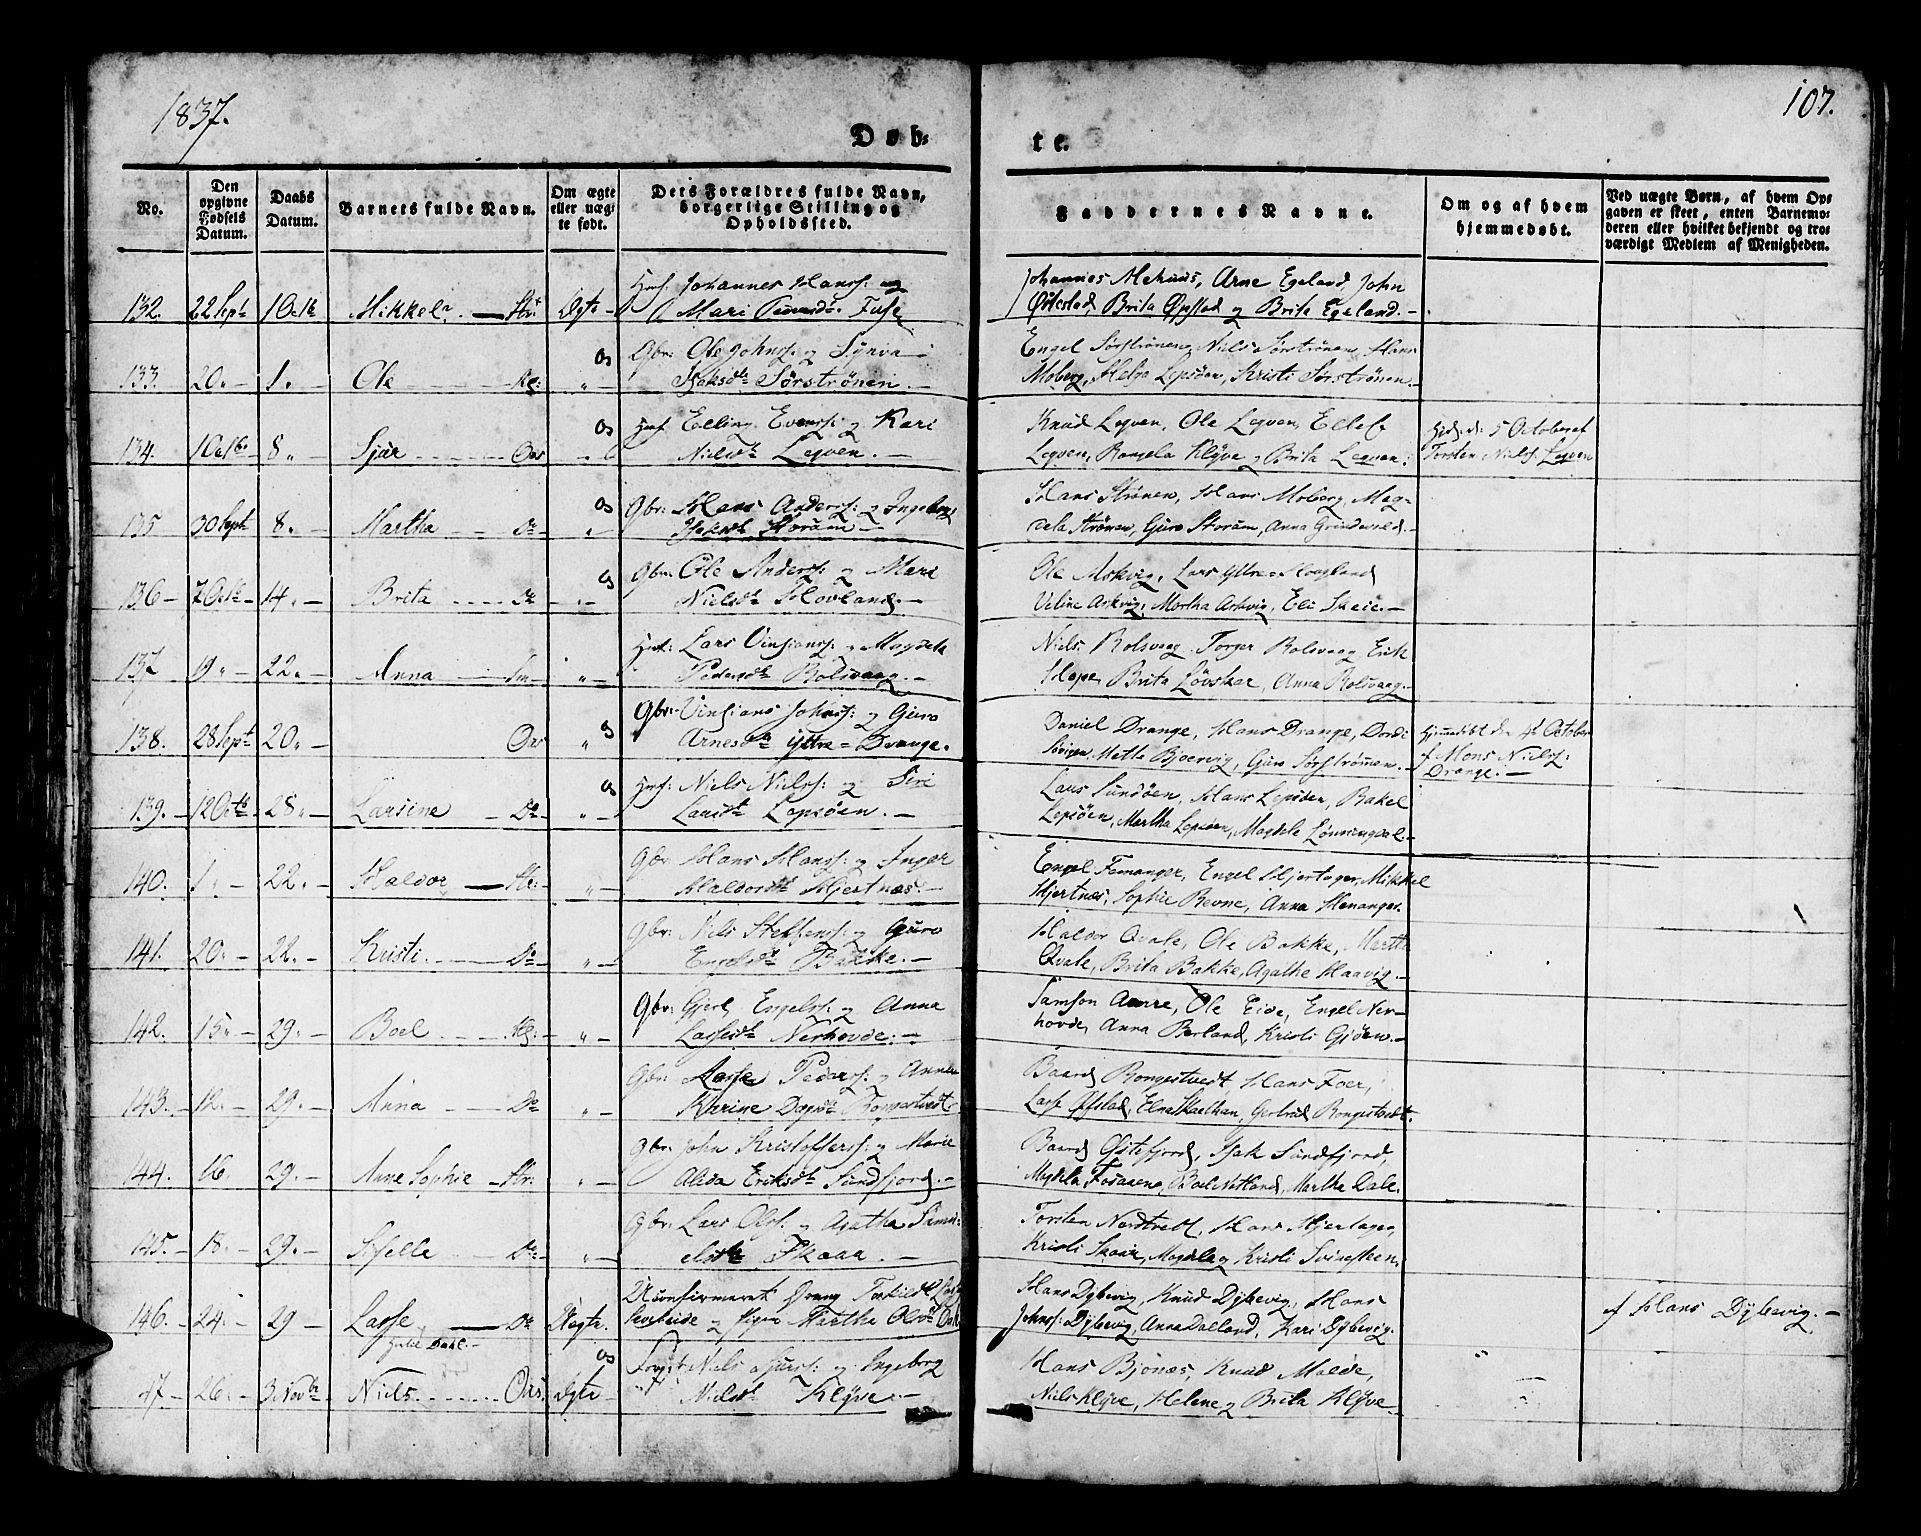 1837.
107.
Døb-
te.
No.
Den opgivne Fødsels Datum.
Daabs Datum.
Barnets fulde Navn.
Om ægte eller uægte født.
Dets Forældres fulde Navn, borgerlige Stilling og Opholdssted.
Faddernes Navne.
Om og af hvem hjemmedøbt.
Ved uægte Børn, af hvem Opgaven er skeet, enten Barnemoderen eller hvilket bekjendt og troværdigt Medlem af Menigheden.
132. 22 Sept. 1 Octb Mikkel Str: Ægte Johannes Hanss: og
Mari Fuse
Johannes Arne Egeland, John
Brita og Brita Egeland.
133. 20. 1. Ole " Os Gbr: Ole Johnss: og Synva
Isaksdtr Sørstrønen.
Engel Sørstrønen, Niels Sørstrønen, Hans
Moberg, Helga Lepsøen, Kristi Sørstrønen.
134. 1 Octb 8 " Sjur Oos " Os Hmf. Elling Evenss: og Kari
Nielsdtr Legven.
Knud Legven, Ole Legven, Ellef
Legven, Rangela Klyve og Brita Legven.
5 October af
Torsten Nielss: Legven
135 30 Sept 8. Martha Do " Os Gbr: Hans Anderss: og Ingeborg
Storum
Hans Strønen, Hans Moberg, Mag-
dela Strønen, Guro Storum, Anna Grindevold.
136 7 Octb 14. Brita Do " Os Gbr: Ole Anderss: og Mari
Nielsdtr Hovland.
Ole Askvig, Lars Yttre Hovgland
Veline Askvig, Martha Askvig, Eli Skeie.
137 19 " 22. Anna " Hmf: Lars Vinsianss: og Magdela
Pedersdtr Rolsvaag.
Niels Rolsvaag, Torger Rolsvaag, Erik
Hope, Brita Løvskar, Anna Rolsvaag.
138. 28 Sept. 20. Oos " Os Gbr: Vinsians Johnss: og Guro
Arnesdtr Yttre=Drange.
Daniel Drange, Hans Drange, Dordi
Søvigen, Metta Bjoervig, Guro Sørstrønen.
Hjemmedøbt den 4de October
af Mons Nielss:
Drange.
139. 12 Octb 28 " Larsine Do " Os Hmf: Niels Nielss: og Siri
Larsdtr Lepsøen.
Lars Sundøen, Hans Lepsøen, Bakel
Lepsøen, Martha Lepsøen, Magdela Lønningdal.
140. 1 " 22. Haldor Str: " Gbr: Hans Hanss: og Inger
Haldorsdtr Hjertnæs.
Engel Femanger, Engel Hjertager, Mikkel
Hjertnæs, Sophie Revne, Anna Henanger.
141. 20. 22. Kristi Do " Gbr: Niels Steffenss: og Guro
Engelsdtr Bakke.
Haldor Qvale, Ole Bakke, Martha
Qvale, Brita Bakke, Agathe Haavig.
142. 15. 29. Boel " Gbr: Gjert Engelss: og Anna
Lassesdtr Nerhovde.
Samson Ole Eide, Engel Ner-
hovde, Anna Berland, Kristi Gjøen.
143. 12. 29. Anna Do " Gbr: Lasse Pederss: og Anna
Karine Rongestvedt
Baard Rongestvedt Hans Foer,
Lasse Øfstad, Gertrud Rongestvedt.
144. 16. 29. Anne Sophie Str: " Gbr: John Kristofferss: og Marie
Alida Eriksdtr Sundfjord.
Baard Østefjord, Isak Sundfjord,
Magdela Boel Martha Dale.
145. 18. 29. Sifelle Do " Gbr: Lars Olss: og Agatha Samu-
elsdtr Skaar.
Torsten Nordtvedt, Hans Hjertager,
Kristi Skaar, Magdela og Kristi
146. 24. 29 Lasse Do Uægte. Ukonfirmeret Torkildss:
og Pigen Martha Olsdtr Dahl
Hans Dybevig, Knud Dybevig, Hans
Johnss: Dybevig, Anna Dalland, Kari Dybevig.
af Hans Dybevig.
Dahl.
47. 26. 3 Novbr Niels Oos. Ægte Os Niels og Ingeborg
Nielsdtr Klyve.
Hans Bjønæs, Knud Malde,
Niels Klyve, Helene og Brita Klyve